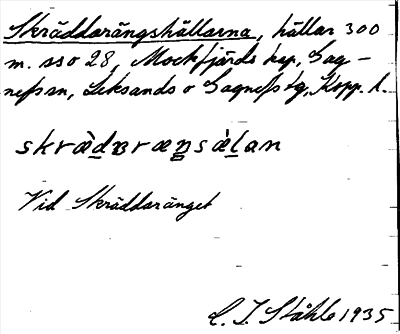 Skräddarängshällarna, hällar 300
m. sso 28, Mockfjärds kap, Gag-
nefs sn, Leksands o Gagnefs tg, Kopp. l.
skrädɐrængsä̀lan
Vid Skräddaränget
C. I. Ståhle 1935